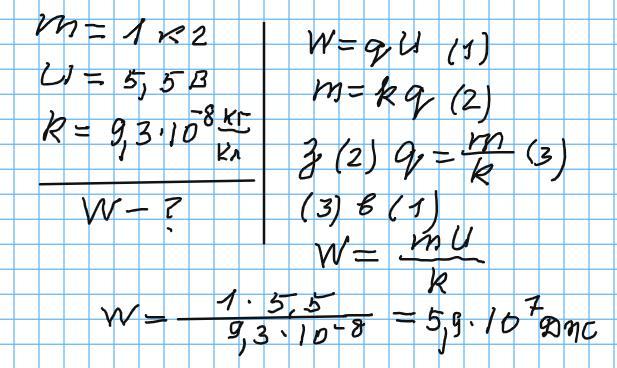 m = 1 кг
U = 5,5 В
k = 9,3·10⁻⁸ кг/Кл
W - ?
W = qU (1)
m = kq (2)
З (2) q = m/k (3)
(3) в (1)
W = mU/k
W = 1·5,5/9,3·10⁻⁸ = 5,9·10⁷ Дж